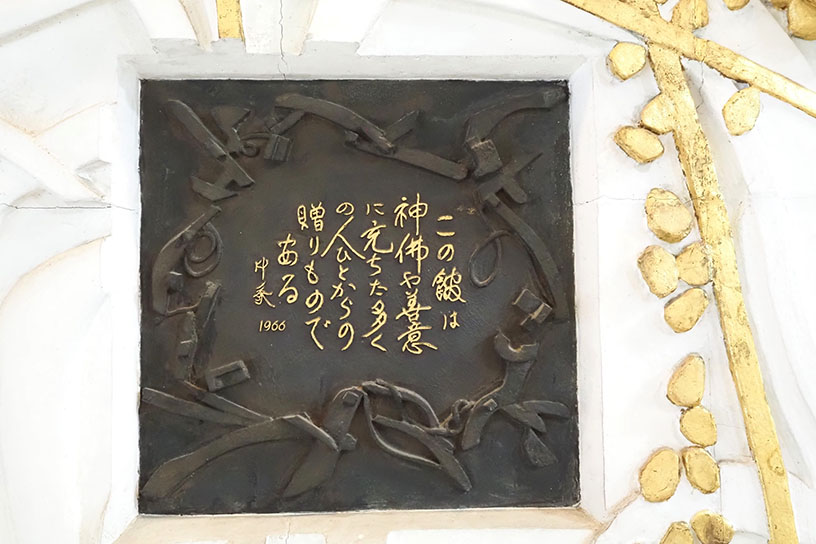 この館は
神佛や善意
に充ちた多く
の人びとからの
贈りもので
ある
1966